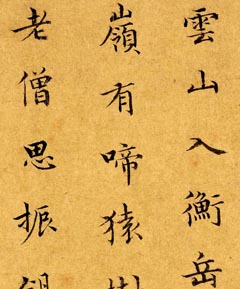 雲山入衡岳
嶺有啼猿
老僧思振